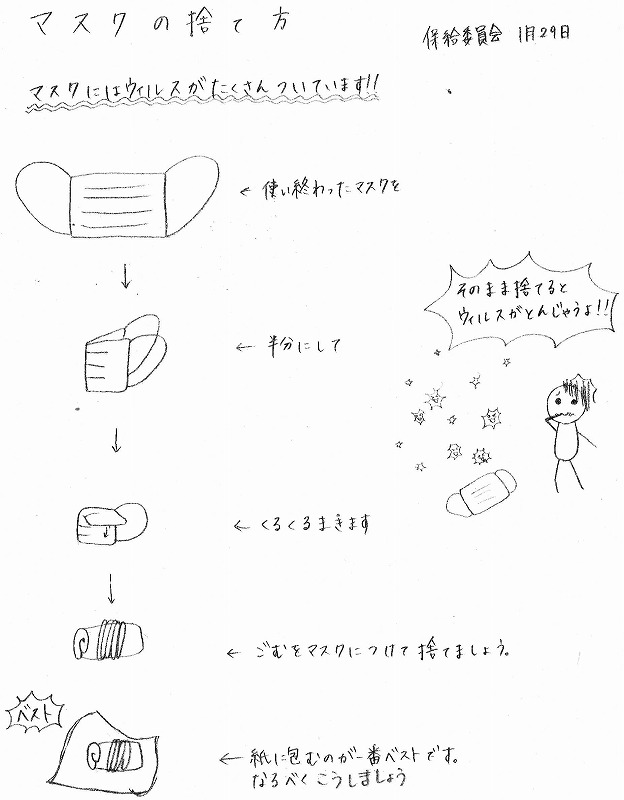 マスクの捨て方
保給委員会 1月29日
マスクにはウィルスがたくさんついています!!
← 使い終わったマスクを
そのまま捨てると
ウィルスがとんじゃうよ!!
← 半分にして
← くるくるまきます
← ごむをマスクにつけて捨てましょう。
ベスト
← 紙に包むのが一番ベストです。
なるべくこうしましょう